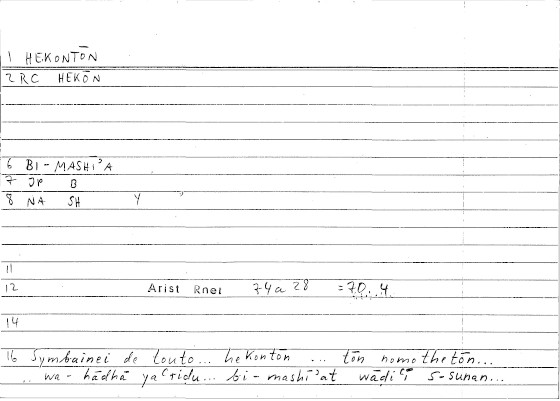 1 HEKONTŌN
2 RC HEKŌN
6 BI - MASHĪʾA
7 JP B
8 NA SH Y
11
12 Arist Rhet 74a28 =70..4.
14
16 Symbainei de touto... hekontōn ... tōn nomothetōn...
.. wa-hādhā yaʿriḍu... bi-mashīʾat wāḍiʿī s-sunan...